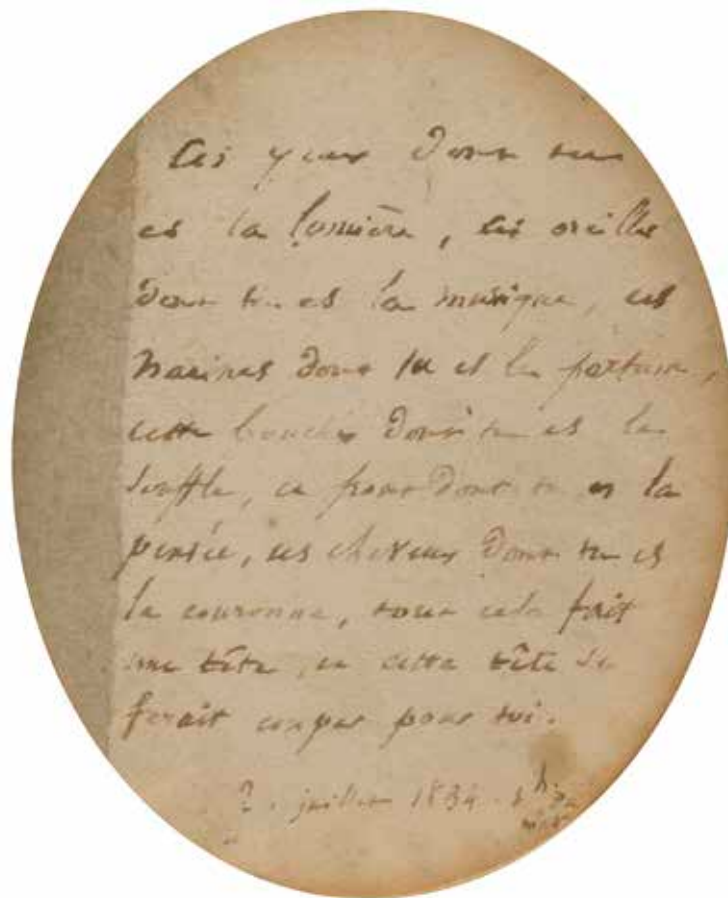 Ces yeux dont tu
es la lumière, ces oreilles
dont tu es la musique, ces
narines dont tu es le parfum,
cette bouche dont tu es le
souffle, ce front dont tu es la
pensée, ces cheveux dont tu es
la couronne, tout cela fait
une tête, et cette tête se
ferait couper pour toi.
juillet 1834